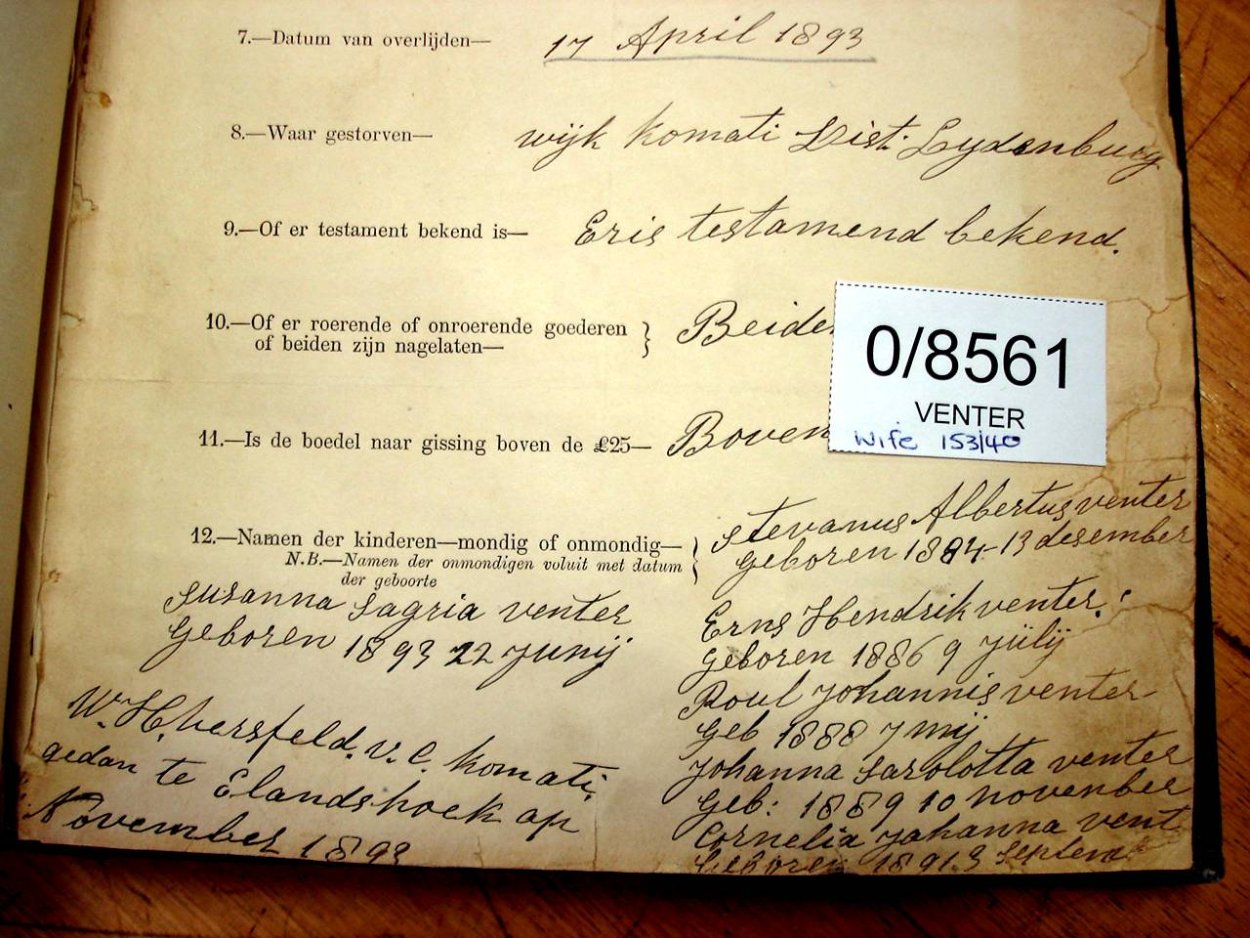 7.—Datum van overlijden— 17 April 1893
8.—Waar gestorven— wijk Komati Dist. Lydenburg
9.—Of er testament bekend is— Eris testamend bekend.
10.—Of er roerende of onroerende goederen
of beiden zijn nagelaten— Beide
0/8561
VENTER
Wife 153/40
11.—Is de boedel naar gissing boven de £25— Boven
12.—Namen der kinderen—mondig of onmondig—
N.B.—Namen der onmondigen voluit met datum
der geboorte
Stevanus Albertus venter
Geboren 1884-13 desember
Erns Hendrik venter.
Geboren 1886 9 Jülij
Poul Johannis venter
Geb 1888 7 mij
Johanna Sarolotta venter
Geb: 1889 10 novenber
Cornelia Johanna vent
Geboren 1891.3 Septem
Susanna Sagria venter
Geboren 1893 22 Junij
W. H. versfeld. v. C. Komati.
gedan te Elandshoek op
November 1893